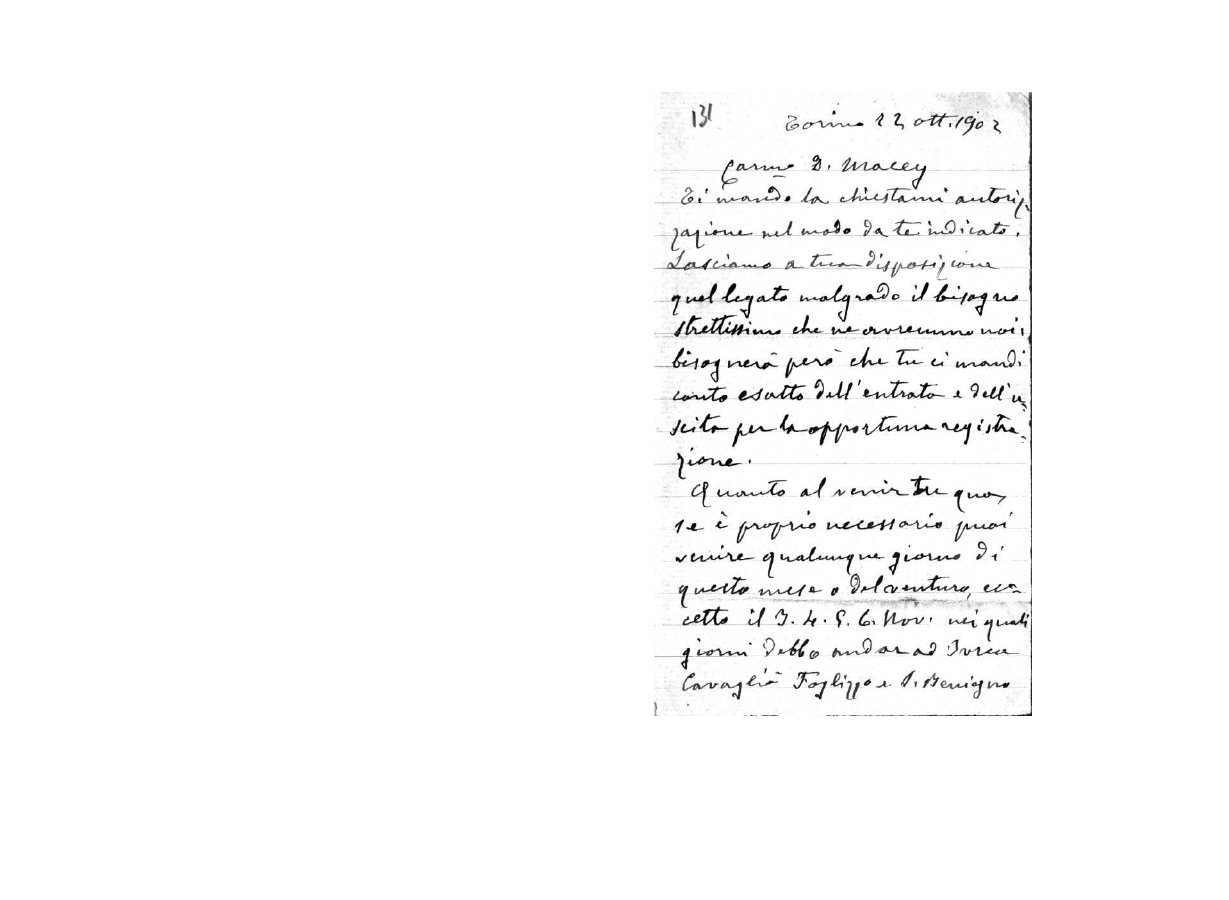 131
Torino 22 ott. 1902
Carmo D. Macey
Ti mando la chiestami autoriz-
zazione nel modo da te indicato.
Lasciamo a tua disposizione
quel legato malgrado il bisogno
strettissimo che ne avremmo noi;
bisognerà però che tu ci mandi
conto esatto dell'entrata e dell'u-
scita per la opportuna registra-
zione.
Quanto al venir tu qua,
se è proprio necessario puoi
venire qualunque giorno di
questo mese o del venturo, ec-
cetto il 3. 4. 5. 6. Nov. nei quali
giorni debbo andar ad Ivrea
Cavaglià Foglizzo e S. Benigno